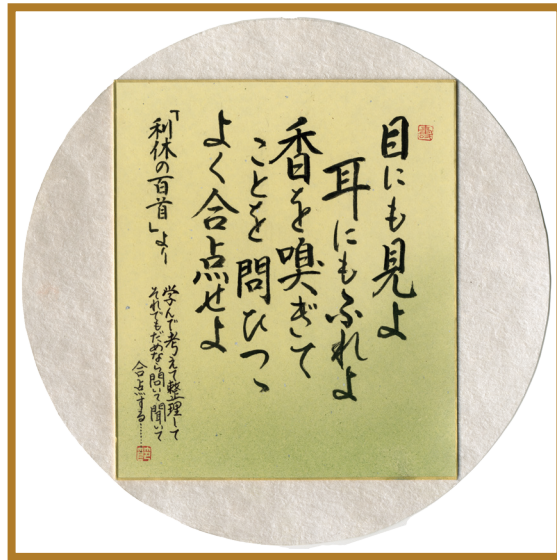 目にも見よ
耳にもふれよ
香を嗅ぎて
ことを問ひつゝ
よく合点せよ
「利休の百首」より
学んで考えて整理して
それでもだめなら問いて聞いて
合点する……